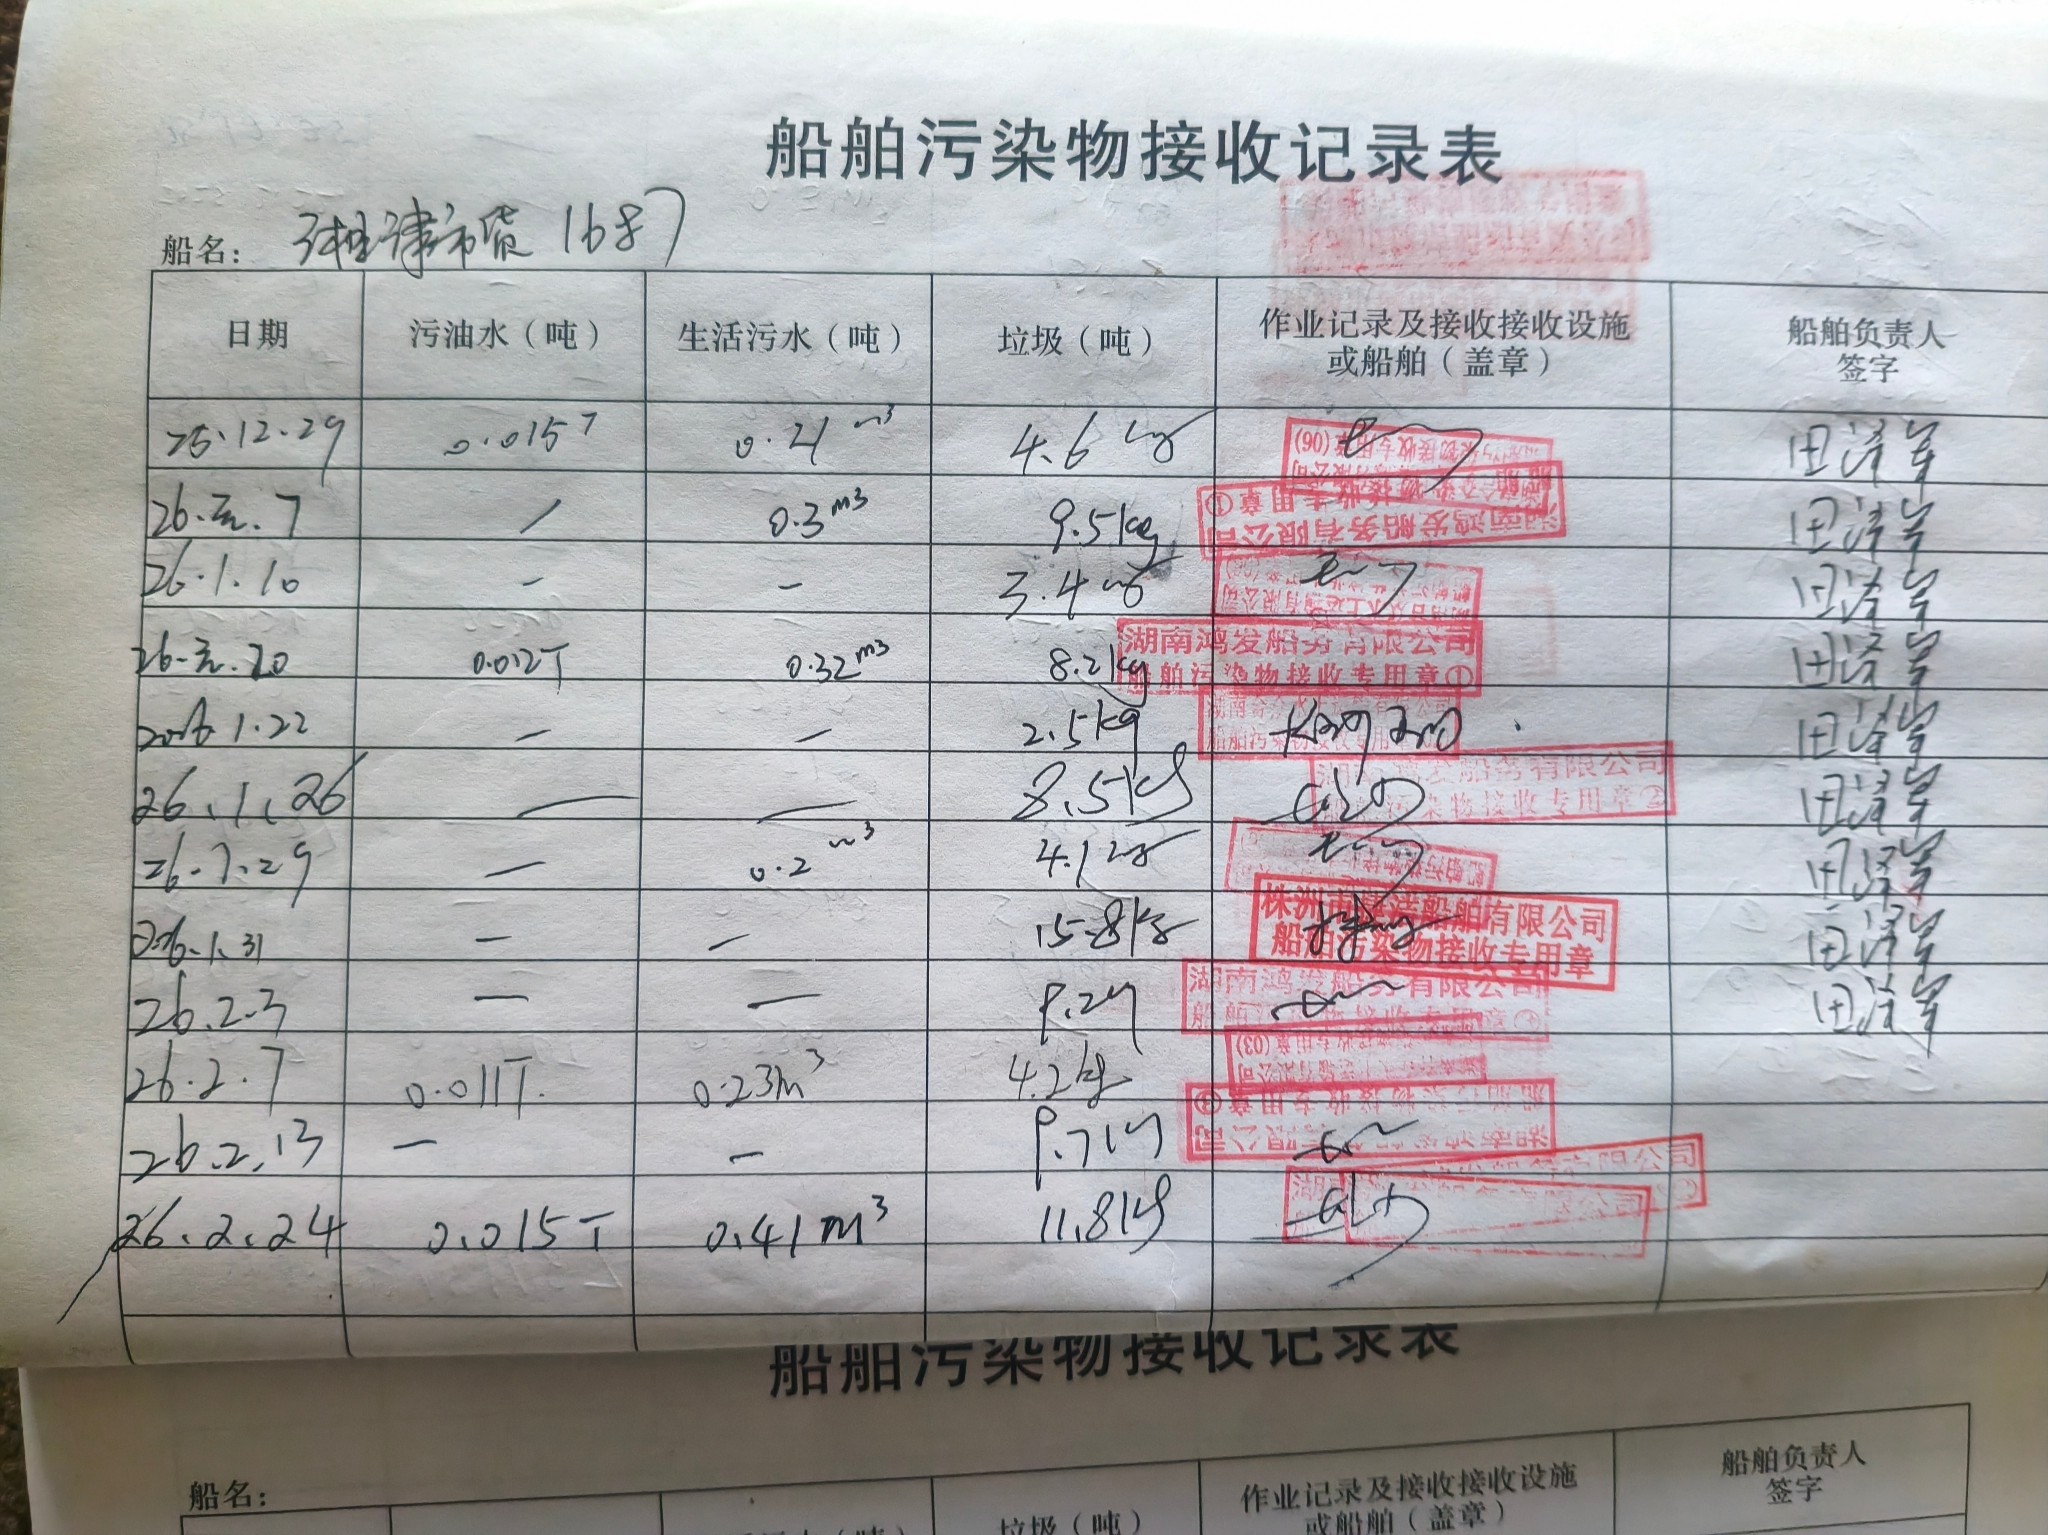 船舶污染物接收记录表
船名： 湘津市货1687
日期 污油水（吨） 生活污水（吨） 垃圾（吨） 作业记录及接收接收设施或船舶（盖章） 船舶负责人签字
25.12.29 0.015T 0.21 m³ 4.6 kg 田泽军
26.元.7 / 0.3m³ 9.5kg 湖南鸿发船务有限公司 船舶污染物接收专用章① 田泽军
26.1.10 - - 3.4 kg 田泽军
26.元.20 0.012T 0.32m³ 8.2kg 湖南鸿发船务有限公司 船舶污染物接收专用章① 田泽军
2026.1.22 - - 2.5kg 船舶污染物接收专用 田泽军
26.1.26 — — 8.5kg 发船务有限公司 污染物接收专用章② 田泽军
26.1.29 — 0.2 m³ 4.1kg 田泽军
2026.1.31 — — 15.8kg 株洲市 洁船舶有限公司 船舶污染物接收专用章 田泽军
26.2.3 — — 9.2kg 湖南鸿发船务有限公司 田泽军
26.2.7 0.011T. 0.23m³ 4.2kg (03)
26.2.13 — — 9.7kg
26.2.24 0.015T 0.41m³ 11.8kg 有限公司
船舶污染物接收记录表
船名：
垃圾（吨） 作业记录及接收接收设施或船舶（盖章） 船舶负责人签字